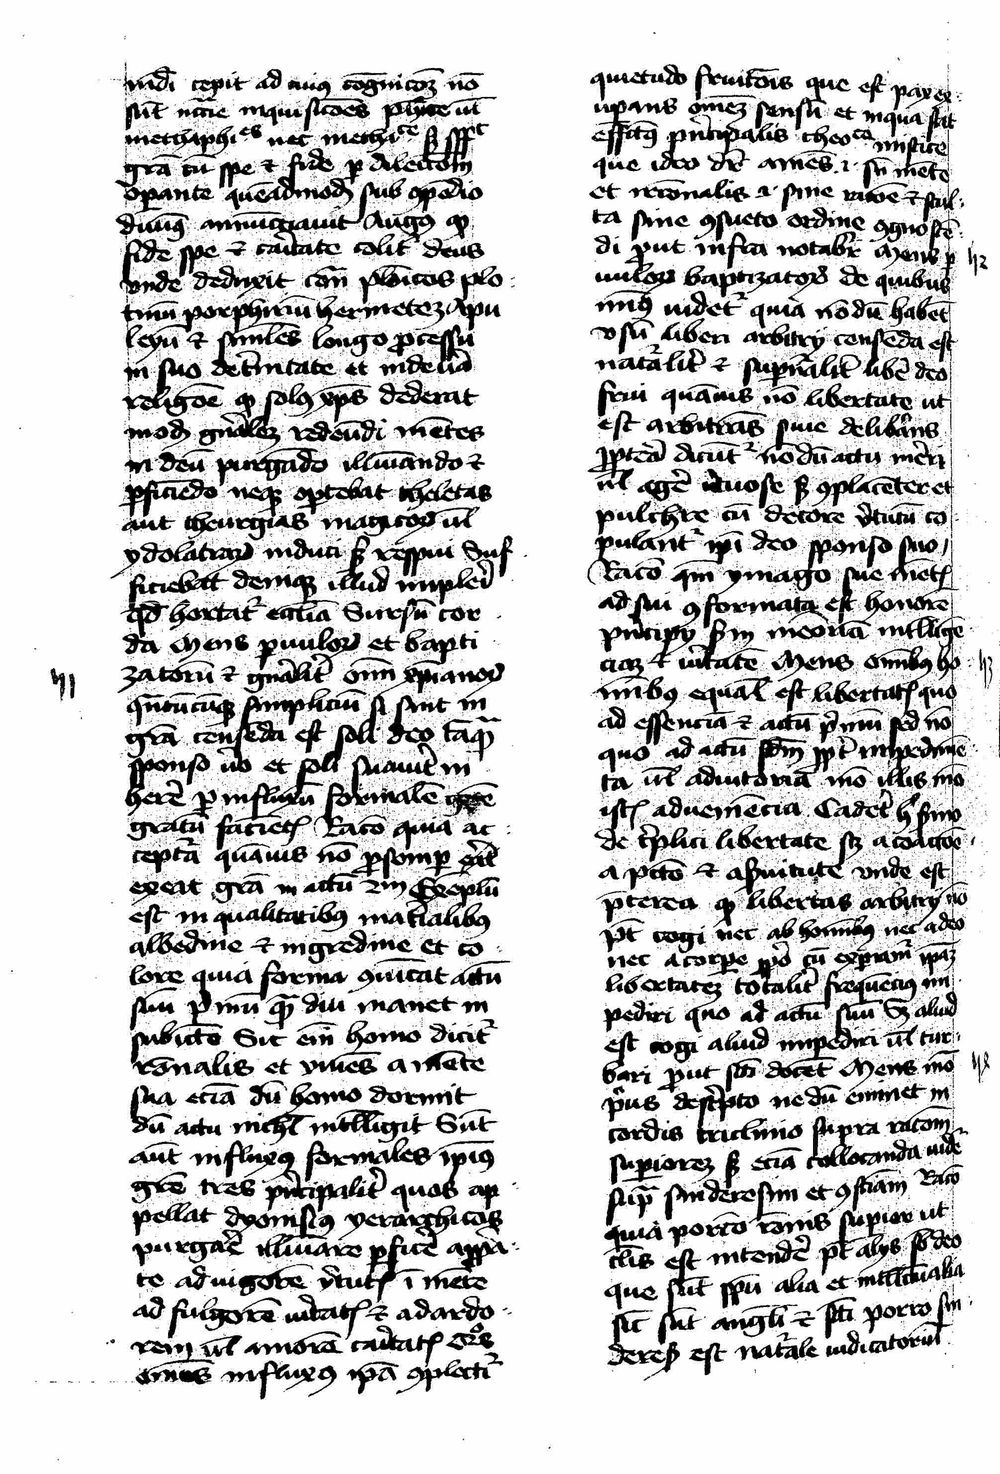 mdi cepit ad cuius cognicoez no
sut ncie inquisicoes phyce ul
methaphices nec methice s spet
gra cu spe et fide p dileccom
opante queadmod sub opedio
diuus annuciauit Augus qp
fide spe et caitate colit deus
vnde deduxit con platoicos plo
tinu porphiriu hermetez Apu
leyu et similes longo pcessu
in suo determitate et inde uia
religoe qp solus xps dederat
mod gnalez redeundi metes
in deu purgado illuiando et
pficiedo neqz optebat theletas
aut theurgias magicor ul
ydolatrar induci s respui Suf
ficiebat demqz illud impleri
qd hortat ecclia Sursu cor
da Mens puulor et bapti
zatoru et gnalit oim xpianor
quatucuqz simpliciu si sint in
gra censeda est soli deo taqz
sponso uo et soli suauit in
here p influxu formale
gratu facietis Raco quia ac
cepta quauis no psomp
exeat gra in actu 2m Exeplu
est in qualitatibus matialibus
albedine et nigredine et co
lore quia forma ouicat actu
suu pmu qua diu manet in
subiecto Sic eni homo dicit
ronalis et viues a mete
sua ecia du homo dormit
du actu nichil intelligit Sut
aut influxus formales ipius
gre tres pncipalit quos ap
pellat dyonisius yerarchicos
purgare illuiare pfice
te ad uigore vtutis i mete
ad fulgore uitatis et ad ardo
rem ul amore caitatis
omnes influxus ipa oplectit
quietudo fruicois que est pax ex
upans omez sensu et in qua stat
effectus pncipalis theoce mistice
que ideo dr amens i sn mente
et irronalis i sine racoe et stul
ta sine osueto ordine ognosce
di put infra notabr Mens p
uulor baptizator de quibus h2
mius uidet quia nodu habet
vsu liberi arbitry censeda est
naturalit et supnalit libe deo
frui quauis no libertate ut
est arbitrans siue delibans
ppterea dicunt nodu actu meri
ul age vtuose s oplacenter et
pulchre cu decore vtutu co
pulant ipi deo sponso suo
Raco qm ymago sue metis
ad sui oformata est honore
pncipy sm meoria intellige
ciaz et uitate Mens omnibus ho h3
minibus equal est libertatis quo
ad essencia et actu pmu sed no
quo ad actu sdm ppt impedime
ta ul adiutoria mo illis mo
istis aduenencia Cadet h smo
de tplici libertate sz a coacoe
a pcto et a suitute vnde est
pterea qp libertas arbitry no
pt cogi nec ab hominibus nec a deo
nec a corpe ppo cu expiam ipaz
libertatez totalit frequecius im
pediri quo ad actu suu Sz aliud
est cogi aliud impediri ul tur
bari put sci docet Mens mo h4
pus descripto nedu eminet in
cordis triclinio supra racom
supiorez s ecia collocanda uidet
supra sinderesim et osciam Raco
quia porcio ronis supior ut
talis est intende pt alys sb deo
que sut spu alia et intellcualia
sic sut angli et sci porro sin
deresis est naturale iudicatoriu
h1